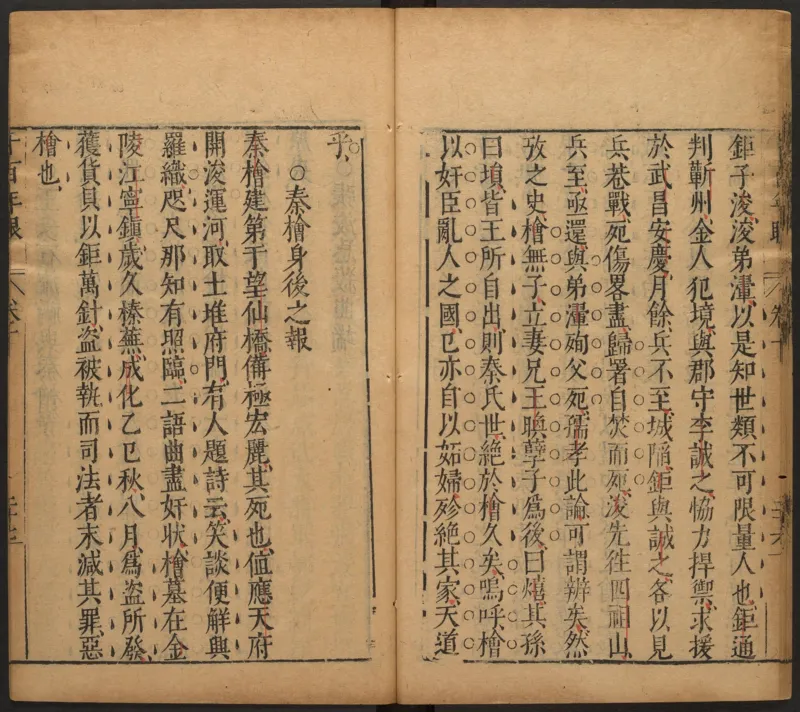 鉅子浚浚弟瀈以是知世類不可限量人也鉅通
判蘄州金人犯境與郡守李誠之協力捍禦求援
於武昌安慶月餘兵不至城陷鉅與誠之各以見
兵巷戰死傷畧盡歸署自焚而死浚先往四祖山
兵至亟還與弟瀈殉父死孺孝此論可謂辨矣然
攷之史檜無子立妻兄王㬇孽子爲後曰熺其孫
曰塤皆王所自出則秦氏世絕於檜久矣嗚呼檜
以奸臣亂人之國已亦自以妬婦殄絕其家天道
乎
○秦檜身後之報
秦檜建第于望仙橋備極宏麗其死也値應天府
開浚運河取土堆府門有人題詩云笑談便解興
羅織咫尺那知有照臨二語曲盡奸狀檜墓在金
陵江寧鎮歲久榛蕪成化乙巳秋八月爲盜所發
獲貨貝以鉅萬計盜被執而司法者末減其罪惡
檜也
千百年眼 卷十